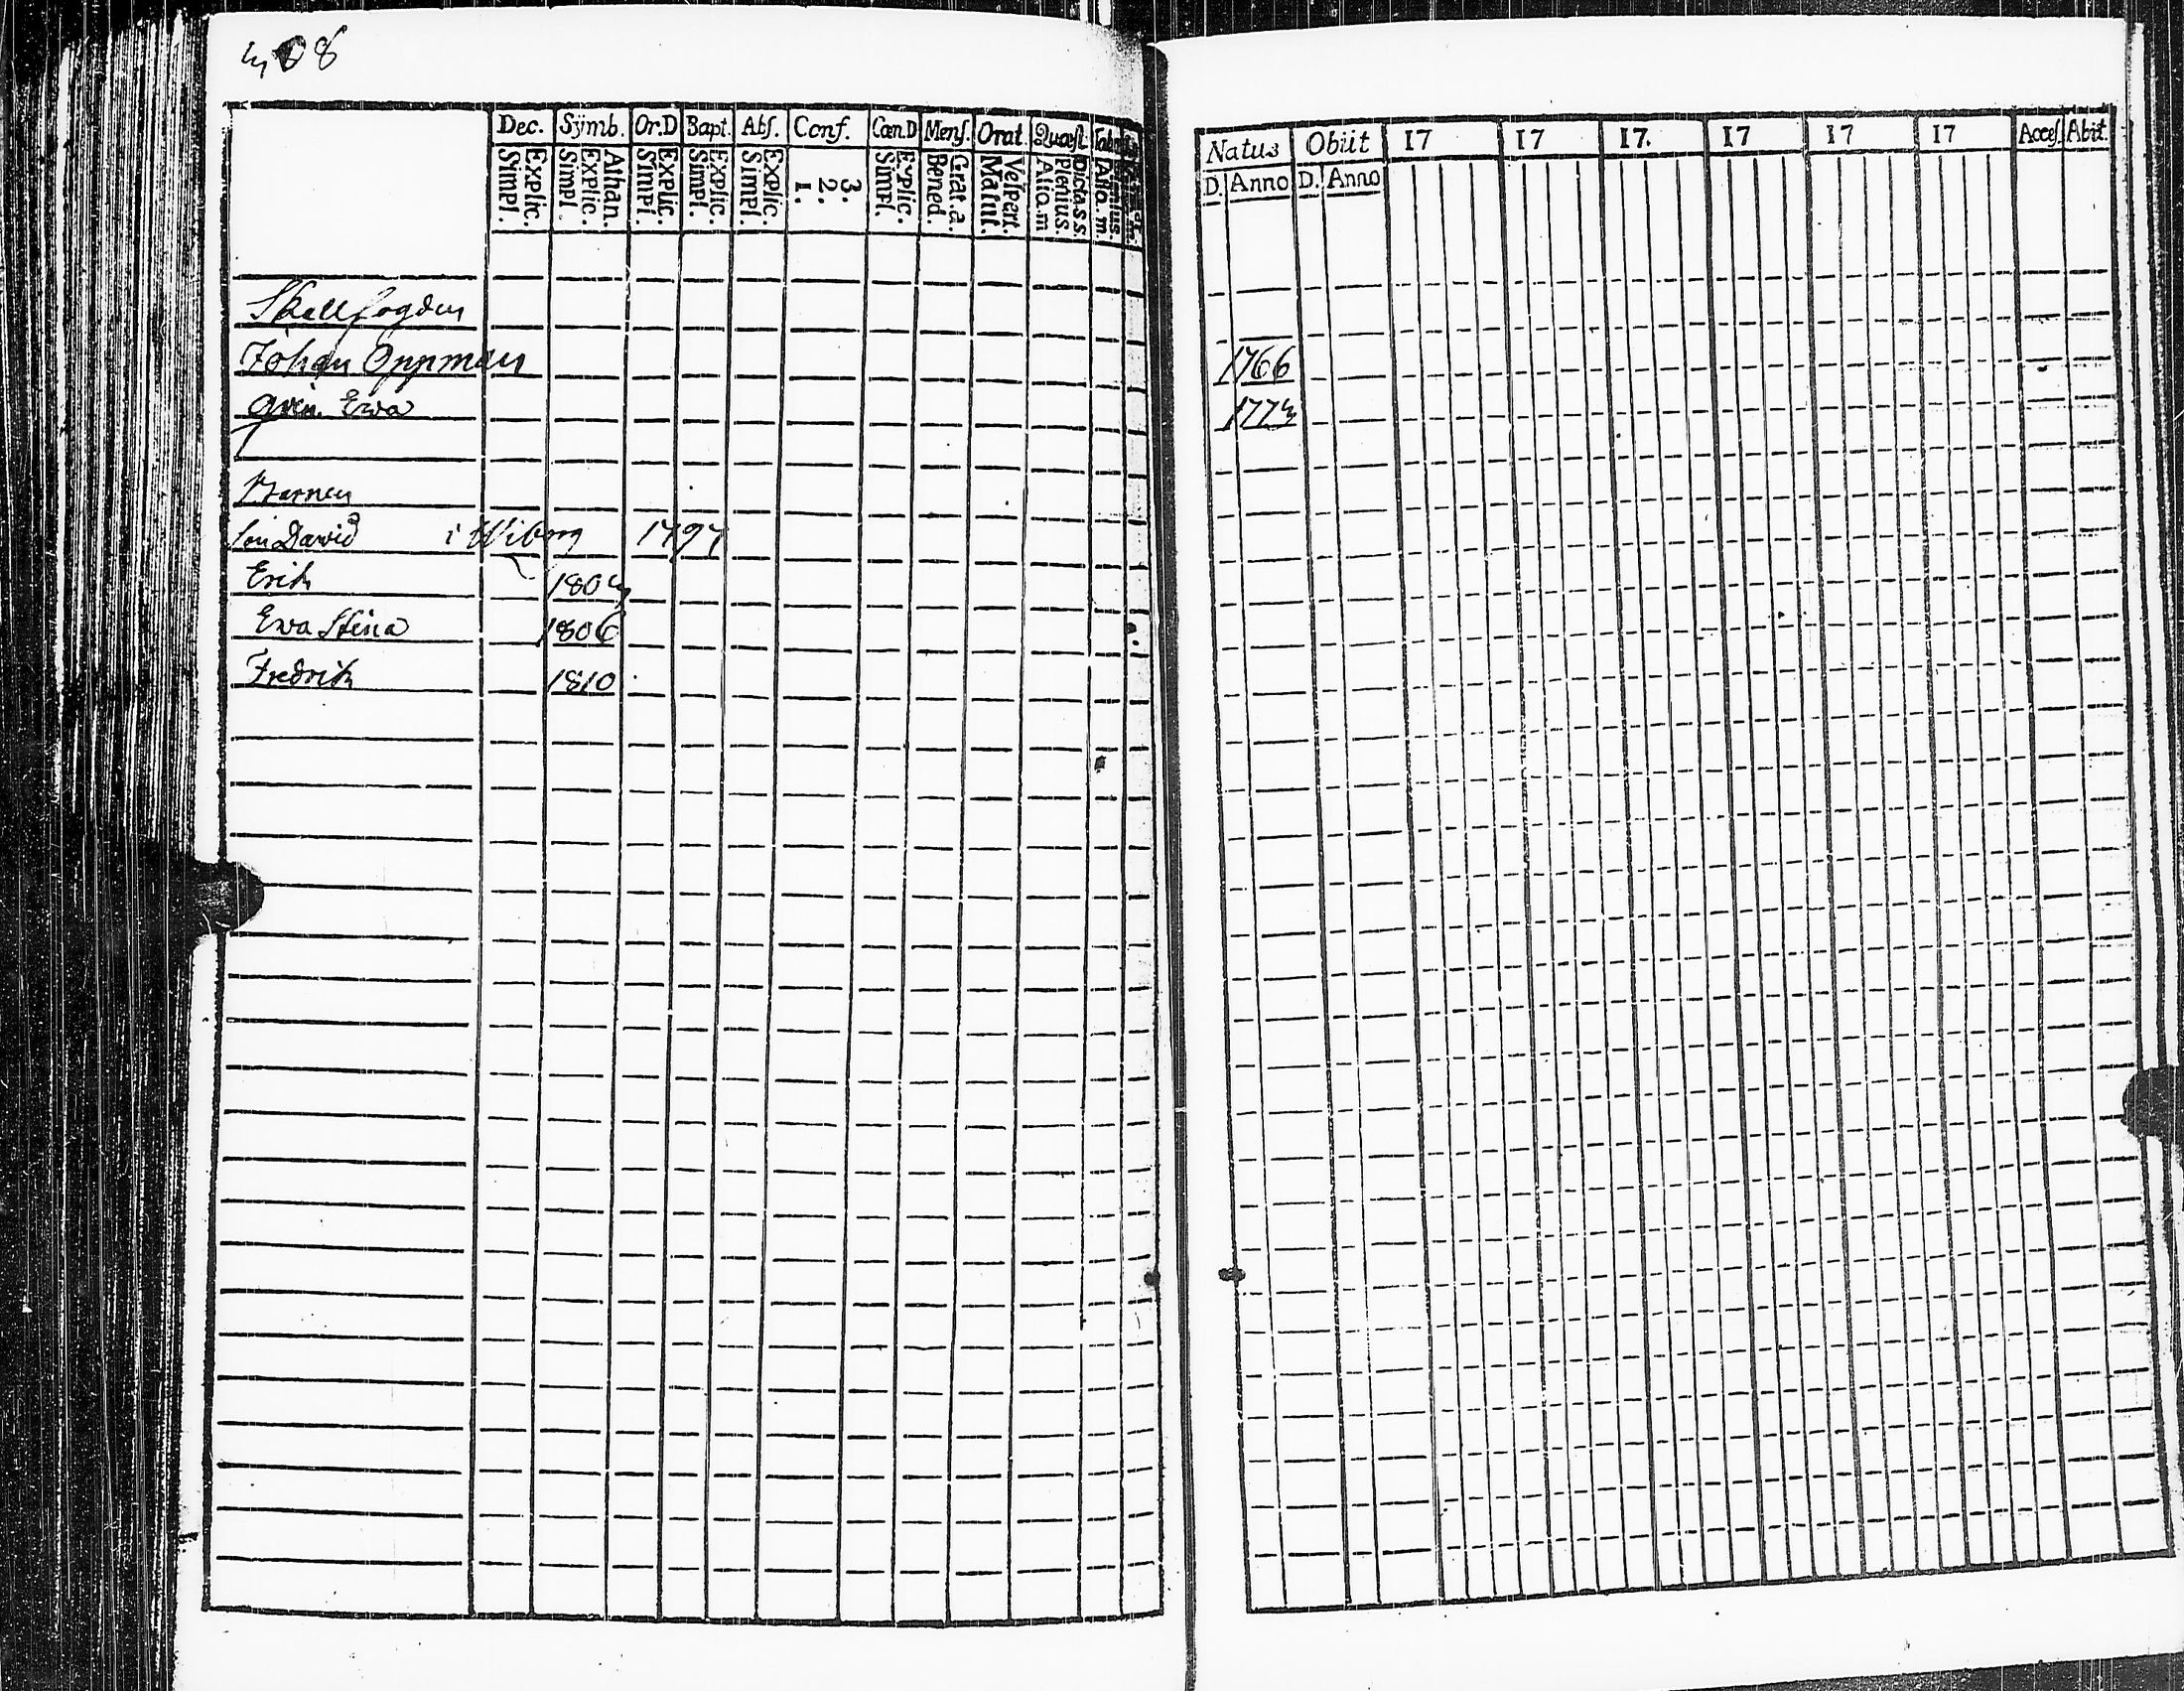 408
Dec. Symb. Or.D Bapt. Abs. Conf. Cœn.D Mens. Orat. Quæst.
Explic. Simpl. Athan. Explic. Simpl. Explic. Simpl. Explic. Simpl. Explic. Simpl. 3. 2. 1. Explic. Simpl. Grat.a. Bened. Vespert. Matut. Dicta s.s. Plenius. Aliq.m
Natus Obiit 17 17 17. 17 17 17 Acces. Abit.
D. Anno D. Anno
Skallfogden
Johan Oppman 1766
Qvin. Ewa 1773
Barnen
son David i Wiborg 1797
Erik 1803
Ewa Stina 1806
Fredrik 1810